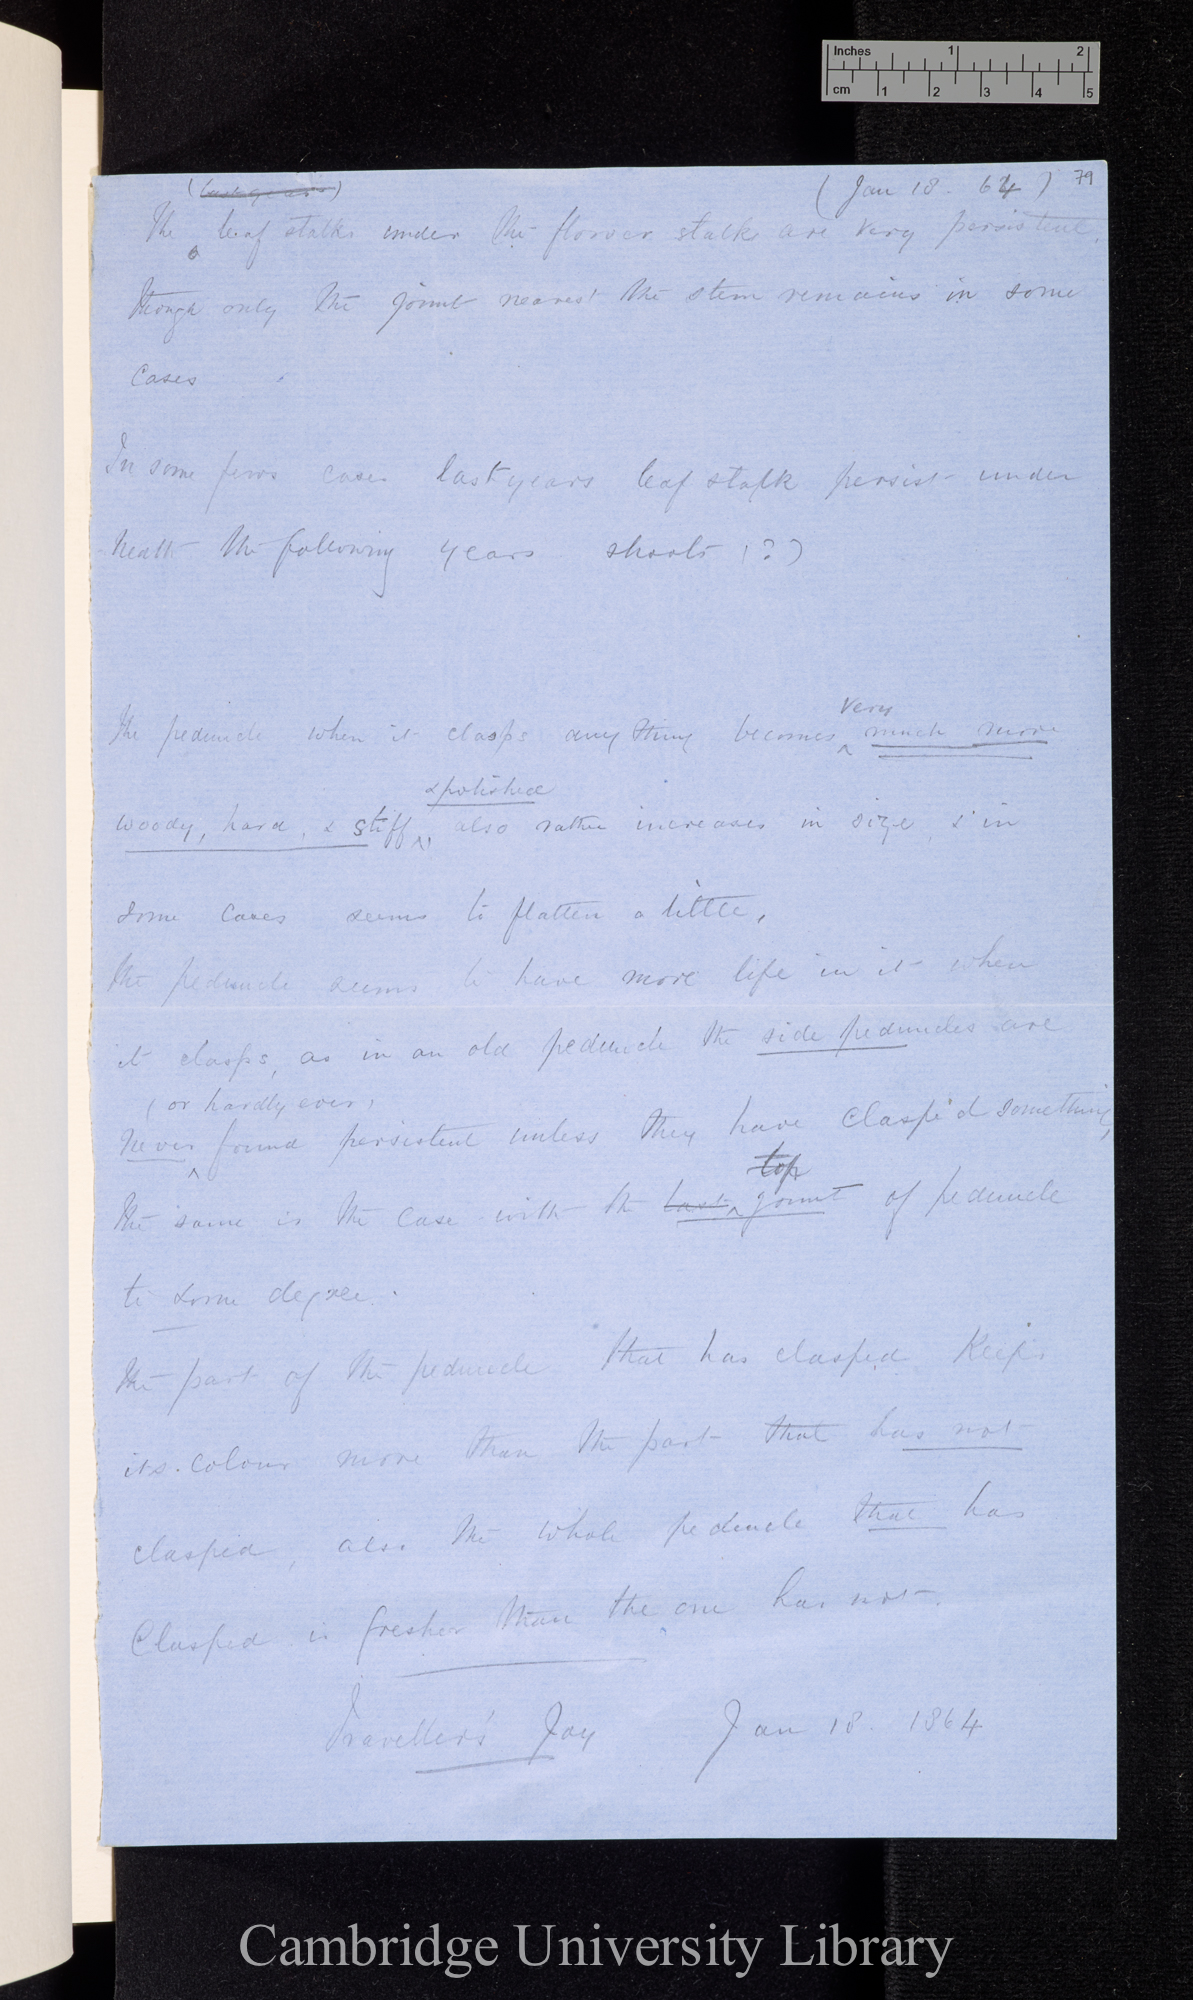 Inches 1 2
cm 1 2 3 4 5
(last years) (Jan 18. 64) 79
The leaf stalks under the flower stalks are very persistent,
though only the joint nearest the stem remains in some
cases
In some few cases last years leaf stalk persist under
neath the following years shoots (?)
very
The peduncle when it clasps any thing becomes ^ much more
& polished
woody, hard, & stiff ^, also rather increases in size, & in
some cases seems to flatten a little.
The peduncle seems to have more life in it when
it clasps, as in an old peduncle the side peduncles are
(or hardly ever)
never ^ found persistent unless they have clasp'd something,
top
The same is the case with the last ^ joint of peduncle
to some degree.
The part of the peduncle that has clasped keeps
its colour more than the part that has not
clasped, also the whole peduncle that has
Clasped is fresher than the one has not.
Traveller's Joy Jan 18. 1864
Cambridge University Library